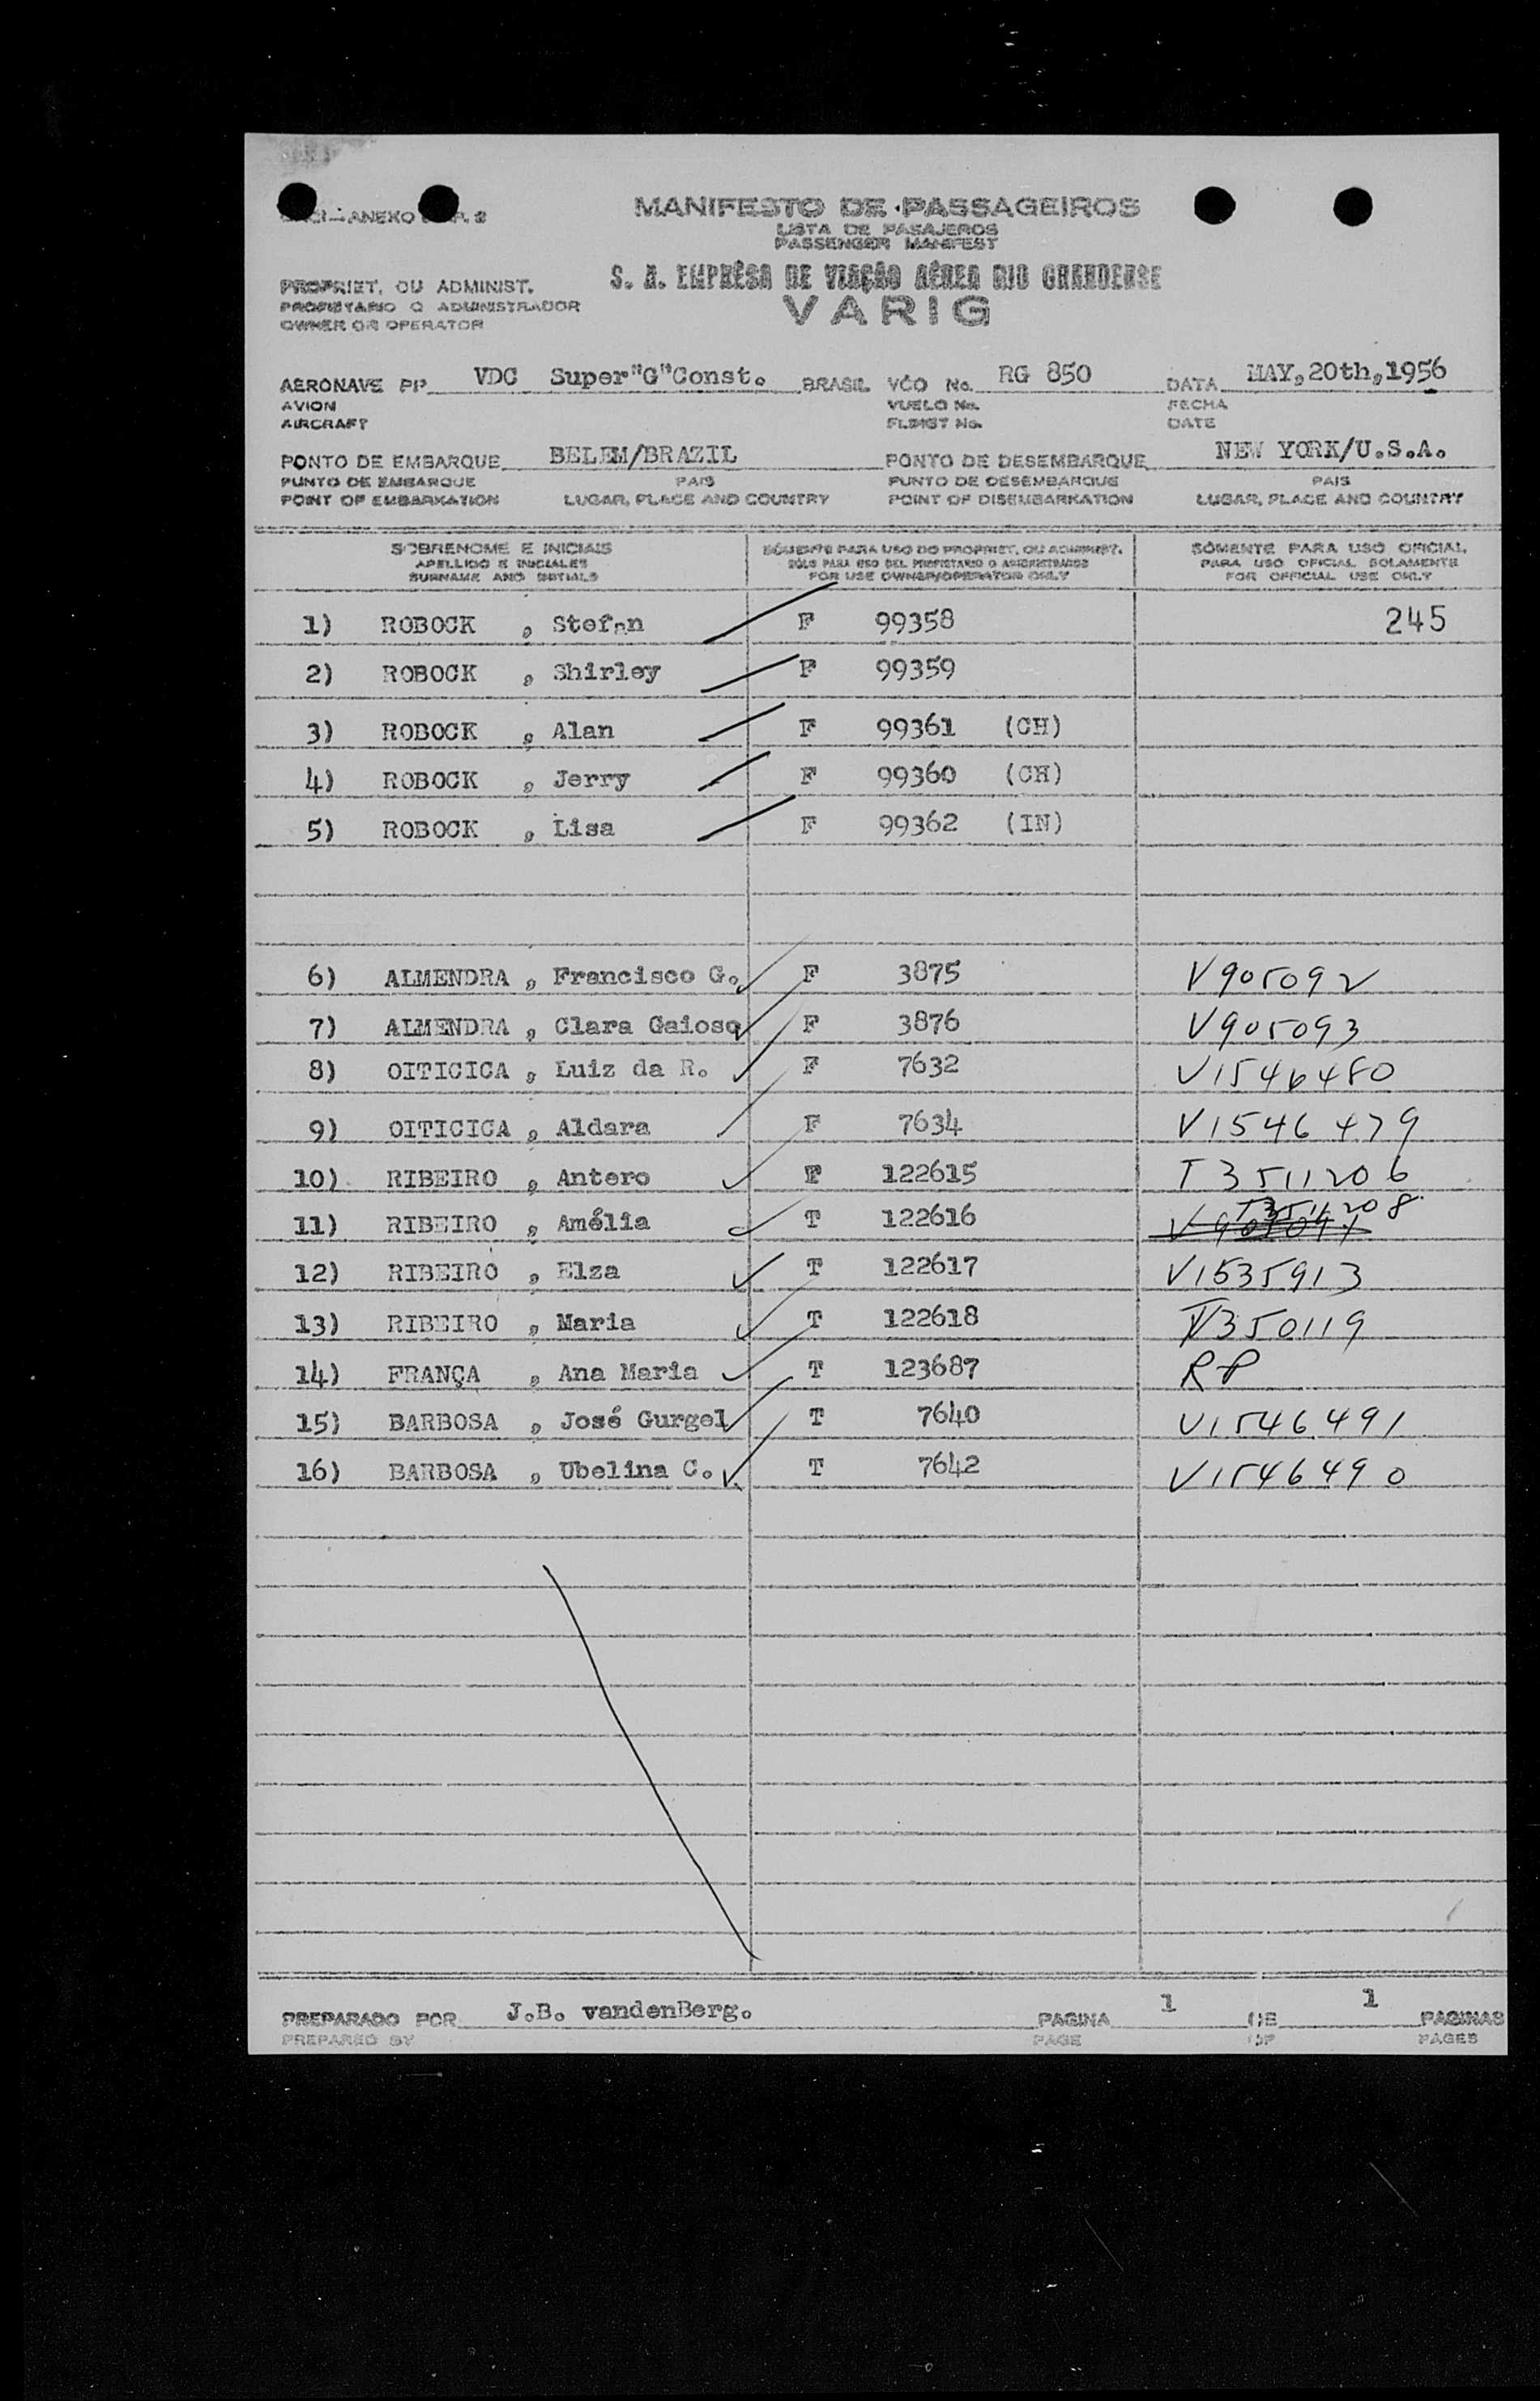 MANIFESTO DE PASSAGEIROS
LISTA DE PASAJEROS
PASSENGER MANIFEST
ANEXO
S. A. EMPRÊSA DE VIAÇÃO AÉREA RIO GRANDENSE
VARIG
PROPRIET. OU ADMINIST.
PROPIETARIO O ADMINISTRADOR
OWNER OR OPERATOR
AERONAVE PP VDC Super"G"Const. BRASIL VÔO No. RG 850 DATA MAY,20th,1956
AVION VUELO No. FECHA
AIRCRAFT FLIGHT No. DATE
PONTO DE EMBARQUE BELEM/BRAZIL PONTO DE DESEMBARQUE NEW YORK/U.S.A.
PUNTO DE EMBARQUE PAIS PUNTO DE DESEMBARQUE PAIS
POINT OF EMBARKATION LUGAR, PLACE AND COUNTRY POINT OF DISEMBARKATION LUGAR, PLACE AND COUNTRY
SOBRENOME E INICIAIS SÓMENTE PARA USO DO PROPRIET. OU ADMINIST. SÓMENTE PARA USO OFICIAL
APELLIDO E INICIALES SÓLO PARA USO DEL PROPIETARIO O ADMINISTRADOR PARA USO OFICIAL SOLAMENTE
SURNAME AND INITIALS FOR USE OWNER/OPERATOR ONLY FOR OFFICIAL USE ONLY
1) ROBOCK , Stefan F 99358 245
2) ROBOCK , Shirley F 99359
3) ROBOCK , Alan F 99361 (CH)
4) ROBOCK , Jerry F 99360 (CH)
5) ROBOCK , Lisa F 99362 (IN)
6) ALMENDRA , Francisco G. F 3875 V905092
7) ALMENDRA , Clara Gaioso F 3876 V905093
8) OITICICA , Luiz da R. F 7632 V1546480
9) OITICICA , Aldara F 7634 V1546479
10) RIBEIRO , Antero F 122615 T3511206
11) RIBEIRO , Amélia T 122616 T3511208
12) RIBEIRO , Elza T 122617 V1535913
13) RIBEIRO , Maria T 122618 V350119
14) FRANÇA , Ana Maria T 123687 RP
15) BARBOSA , José Gurgel T 7640 V1546491
16) BARBOSA , Ubelina C. T 7642 V1546490
PREPARADO POR J.B. vandenBerg. PAGINA 1 DE 1 PAGINAS
PREPARED BY PAGE OF PAGES